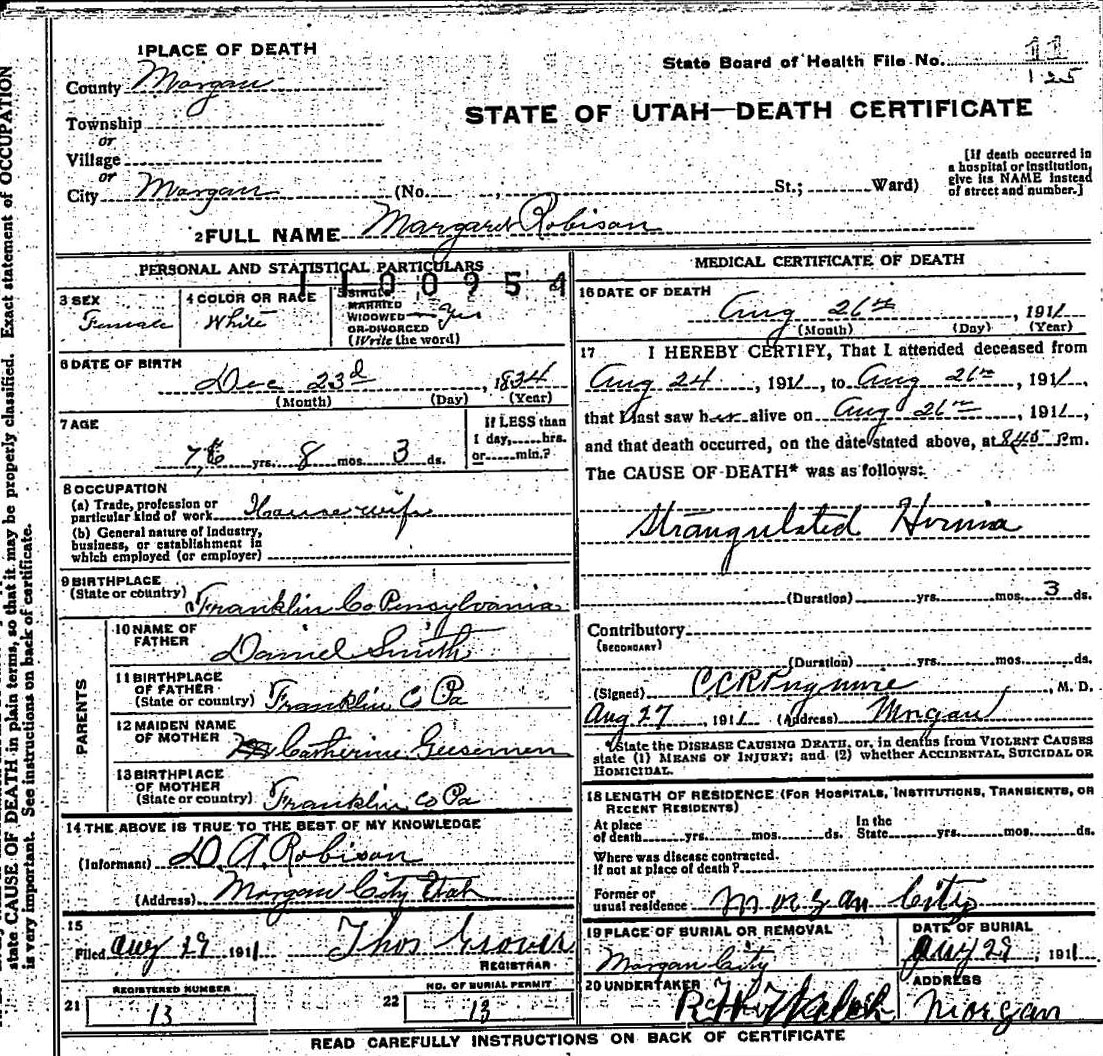 1 PLACE OF DEATH
County Morgan
Township
or
Village
or
City Morgan (No. , St.; Ward)
State Board of Health File No. 11
125
STATE OF UTAH—DEATH CERTIFICATE
[If death occurred in
a hospital or institution,
give its NAME instead
of street and number.]
2 FULL NAME Margaret Robison
PERSONAL AND STATISTICAL PARTICULARS
1100954
3 SEX
Female
4 COLOR OR RACE
White
5 SINGLE
MARRIED
WIDOWED yes
OR DIVORCED
(Write the word)
6 DATE OF BIRTH
Dec 23d, 1834
(Month) (Day) (Year)
7 AGE
76 yrs. 8 mos. 3 ds.
If LESS than
1 day, hrs.
or min.?
8 OCCUPATION
(a) Trade, profession or
particular kind of work Housewife
(b) General nature of industry,
business, or establishment in
which employed (or employer)
9 BIRTHPLACE
(State or country)
Franklin Co Pensylvania
PARENTS
10 NAME OF
FATHER
Daniel Smith
11 BIRTHPLACE
OF FATHER
(State or country) Franklin Co Pa
12 MAIDEN NAME
OF MOTHER
Catherine Geesemen
13 BIRTHPLACE
OF MOTHER
(State or country) Franklin Co Pa
14 THE ABOVE IS TRUE TO THE BEST OF MY KNOWLEDGE
(Informant) D. A. Robison
(Address) Morgan City Utah
15
Filed Aug 29 1911 Thos Grover
REGISTRAR
21 REGISTERED NUMBER
13
22 NO. OF BURIAL PERMIT
13
MEDICAL CERTIFICATE OF DEATH
16 DATE OF DEATH
Aug 26th, 1911
(Month) (Day) (Year)
17 I HEREBY CERTIFY, That I attended deceased from
Aug 24, 1911, to Aug 26th, 1911,
that I last saw her alive on Aug 26th, 1911,
and that death occurred, on the date stated above, at 8.45 P.m.
The CAUSE OF DEATH* was as follows:
Strangulated Hernia
(Duration) yrs. mos. 3 ds.
Contributory
(SECONDARY)
(Duration) yrs. mos. ds.
(Signed) , M. D.
Aug 27, 1911 (Address) Morgan
*State the DISEASE CAUSING DEATH, or, in deaths from VIOLENT CAUSES
state (1) MEANS OF INJURY; and (2) whether ACCIDENTAL, SUICIDAL OR
HOMICIDAL.
18 LENGTH OF RESIDENCE (FOR HOSPITALS, INSTITUTIONS, TRANSIENTS, OR
RECENT RESIDENTS)
At place
of death yrs. mos. ds. In the
State yrs. mos. ds.
Where was disease contracted.
If not at place of death?
Former or
usual residence Morgan City
19 PLACE OF BURIAL OR REMOVAL
Morgan City
DATE OF BURIAL
Aug 29, 1911
20 UNDERTAKER
ADDRESS
Morgan
READ CAREFULLY INSTRUCTIONS ON BACK OF CERTIFICATE
state CAUSE OF DEATH in plain terms, so that it may be properly classified. Exact statement of OCCUPATION
is very important. See instructions on back of certificate.